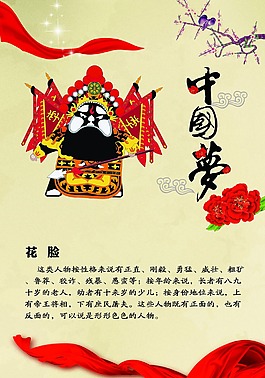 中國夢
花 脸
这类人物按性格来说有正直、刚毅、勇猛、威壮、粗犷
、鲁莽、狡诈、残暴、愚蛮等；按年龄来说，长者有八九
十岁的老人，幼者有十来岁的少儿；按身份地位来说，上
有帝王将相，下有庶民屠夫。这些人物既有正面的，也有
反面的，可以说是形形色色的人物。